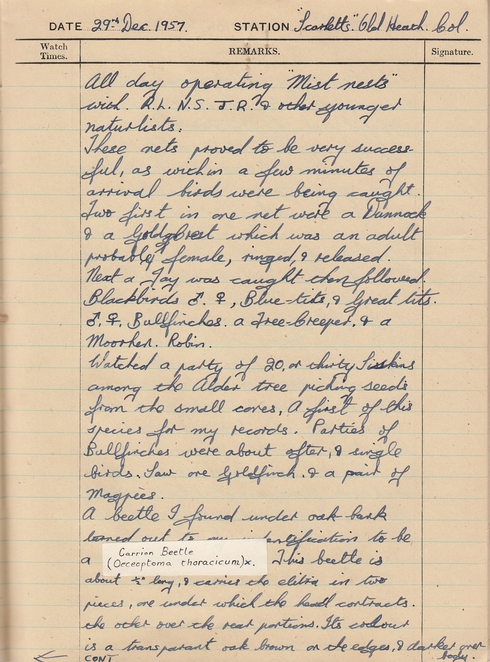 DATE 29th Dec. 1957. STATION "Scarletts" Old Heath. Col.
Watch Times. REMARKS. Signature.
All day operating "Mist nests"
with. R.L. N.S. J.R. & other younger
naturlists.
These nets proved to be very success-
ful, as within a few minutes of
arrival birds were being caught.
Two first in one net were a Dunnock
& a Goldcrest which was an adult
probably female, ringed, & released.
Next a Jay was caught then followed
Blackbirds ♂. ♀, Blue-tits, & Great tits.
♂. ♀. Bullfinches. a Tree-Creeper. & a
Moorhen. Robin.
Watched a party of 20, or thirty Siskins
among the Alder tree picking seeds
from the small cones, A first of this
species for my records. Parties of
Bullfinches were about often, & single
birds. Saw one Goldfinch. & a pair of
Magpies.
A beetle I found under oak bark
turned out to my identification to be
a Carrion Beetle
(Oeceoptoma thoracicum)x. This beetle is
about ½" long, & carries the elitra in two
pieces, one under which the head contracts.
the other over the rear portions. Its colour
is a transparant oak brown on the edges, & darker over
body.
← CONT